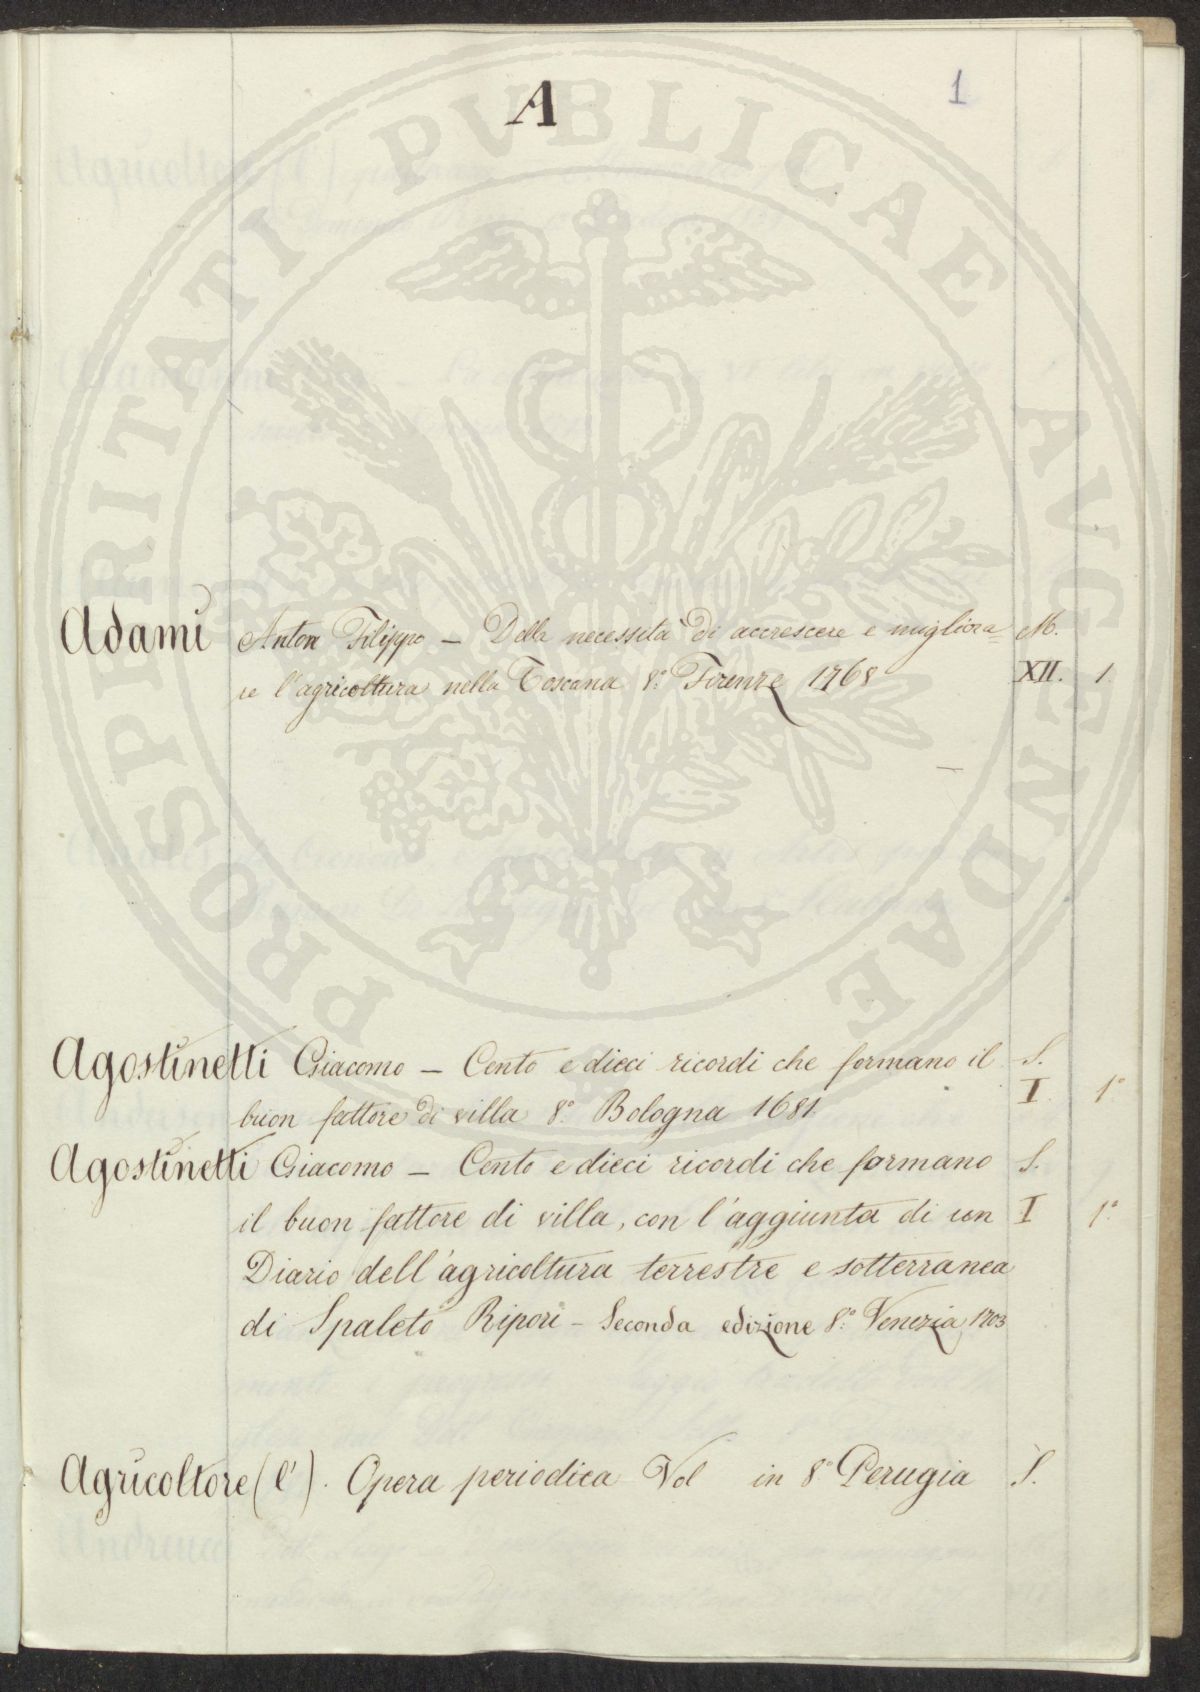 A
1
PROSPERITATI PVBLICAE AVGENDAE
Adami Anton Filippo — Della necessità di accrescere e migliora= M.
re l'agricoltura nella Toscana 8.° Firenze 1768 XII. 1.
Agostinetti Giacomo — Cento e dieci ricordi che formano il S.
buon fattore di villa 8.° Bologna 1681 I. 1.°
Agostinetti Giacomo — Cento e dieci ricordi che formano S.
il buon fattore di villa, con l'aggiunta di un I 1.°
Diario dell'agricoltura terrestre e sotterranea
di Spaleto Ripori - Seconda edizione 8.° Venezia 1703
Agricoltore (l'). Opera periodica Vol in 8° Perugia S.